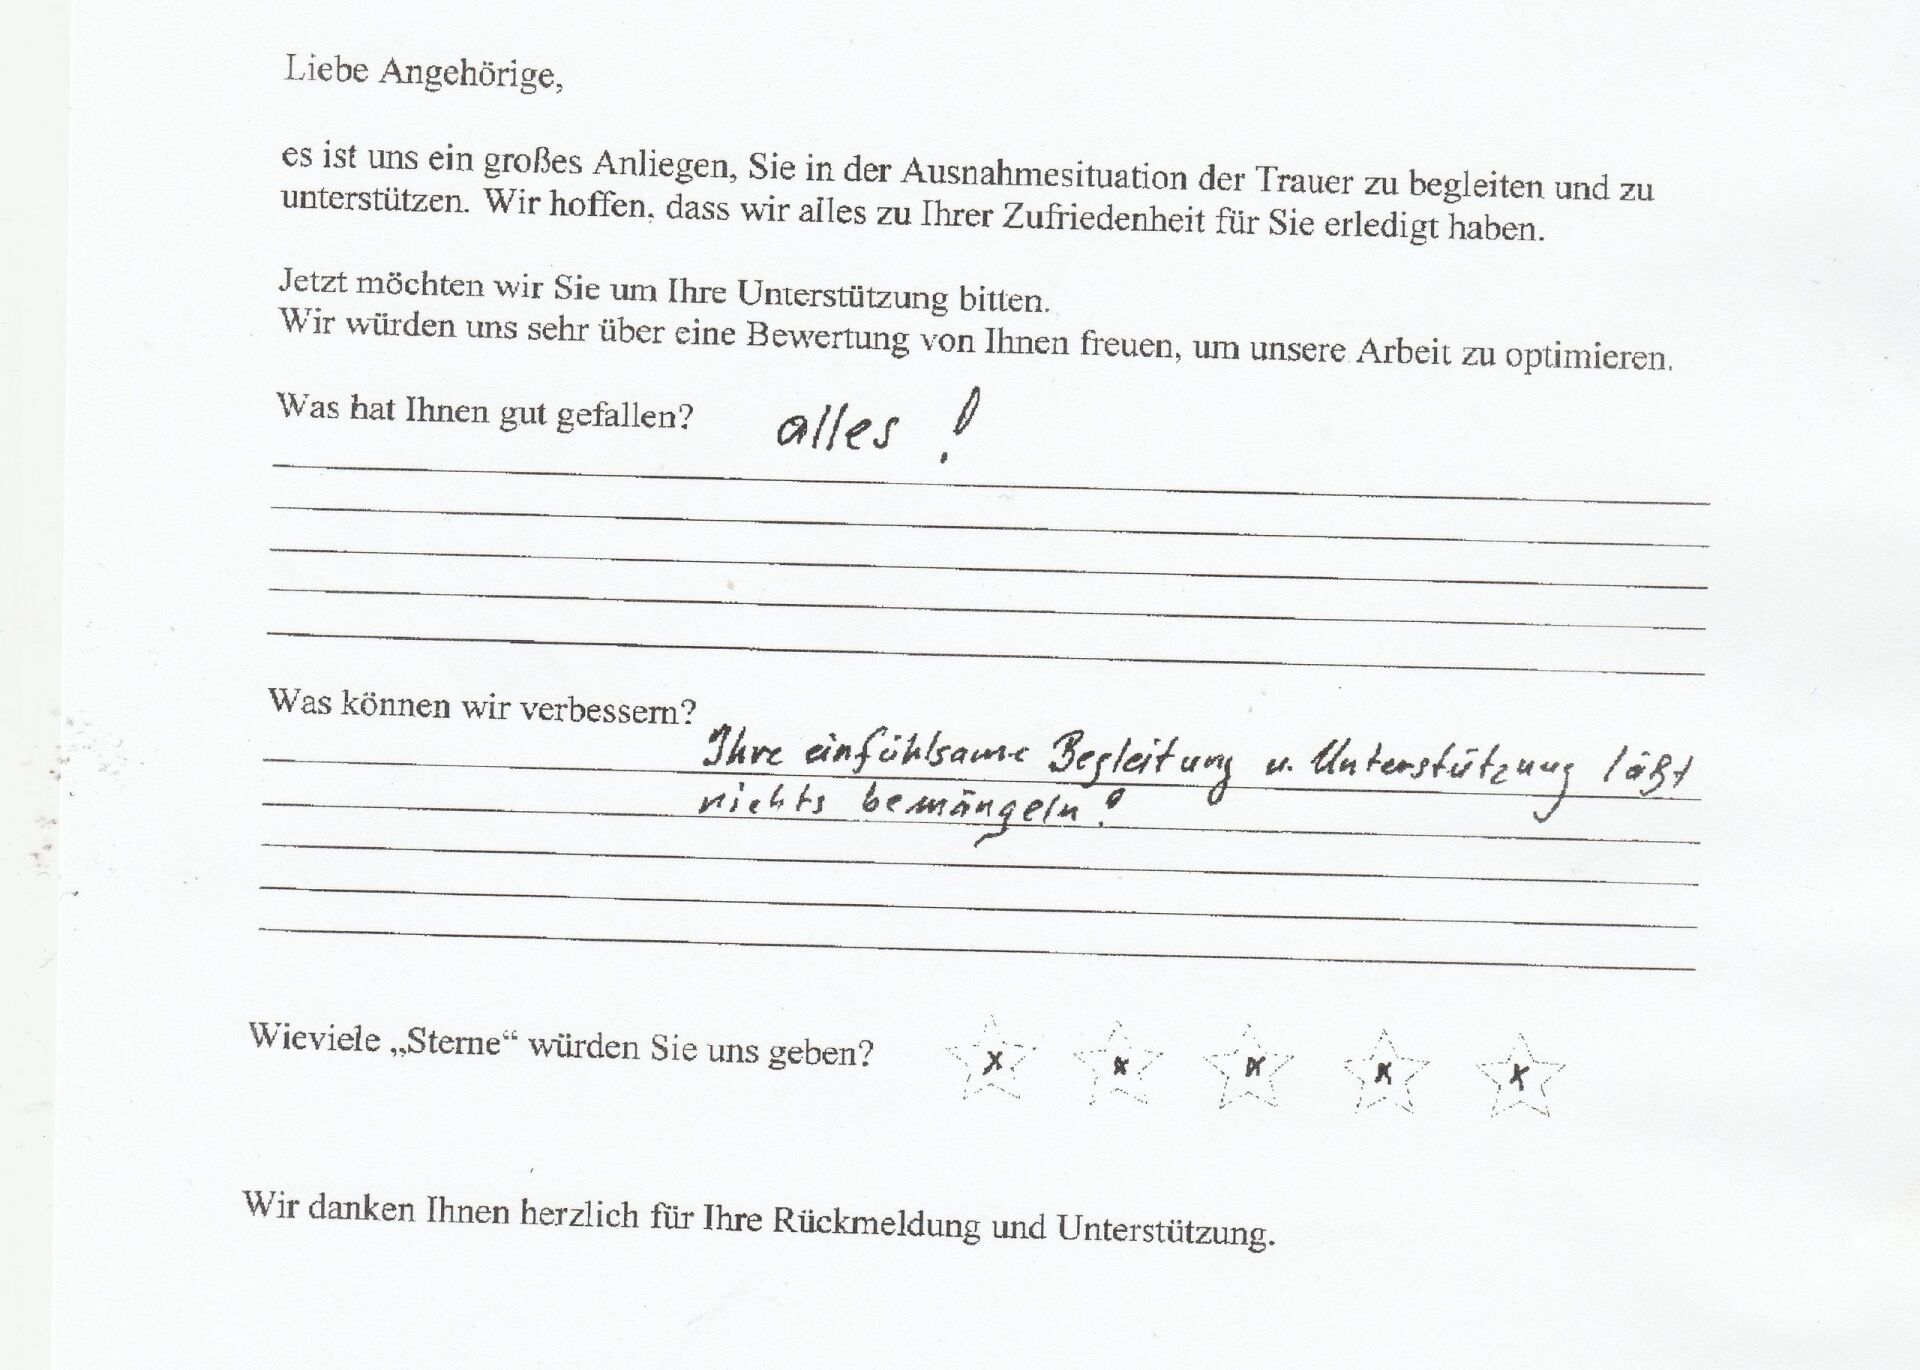 Liebe Angehörige,
es ist uns ein großes Anliegen, Sie in der Ausnahmesituation der Trauer zu begleiten und zu
unterstützen. Wir hoffen, dass wir alles zu Ihrer Zufriedenheit für Sie erledigt haben.
Jetzt möchten wir Sie um Ihre Unterstützung bitten.
Wir würden uns sehr über eine Bewertung von Ihnen freuen, um unsere Arbeit zu optimieren.
Was hat Ihnen gut gefallen? alles !
Was können wir verbessern?
Ihre einfühlsame Begleitung u. Unterstützung läßt
nichts bemängeln!
Wieviele „Sterne“ würden Sie uns geben? x x x x x
Wir danken Ihnen herzlich für Ihre Rückmeldung und Unterstützung.